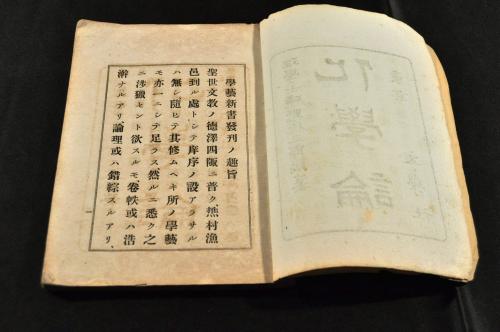 化學論
學藝新書發刊ノ趣旨
聖世文教ノ德澤四陬ニ普ク樵村漁
邑到ル處トシテ庠序ノ設アラサル
ハ無シ隨ヒテ其修ムベキ所ノ學藝
モ亦一ニシテ足ラス然ルニ悉ク之
ニ涉獵セント欲スルモ卷帙或ハ浩
澣ナルアリ、論理或ハ錯綜スルアリ、